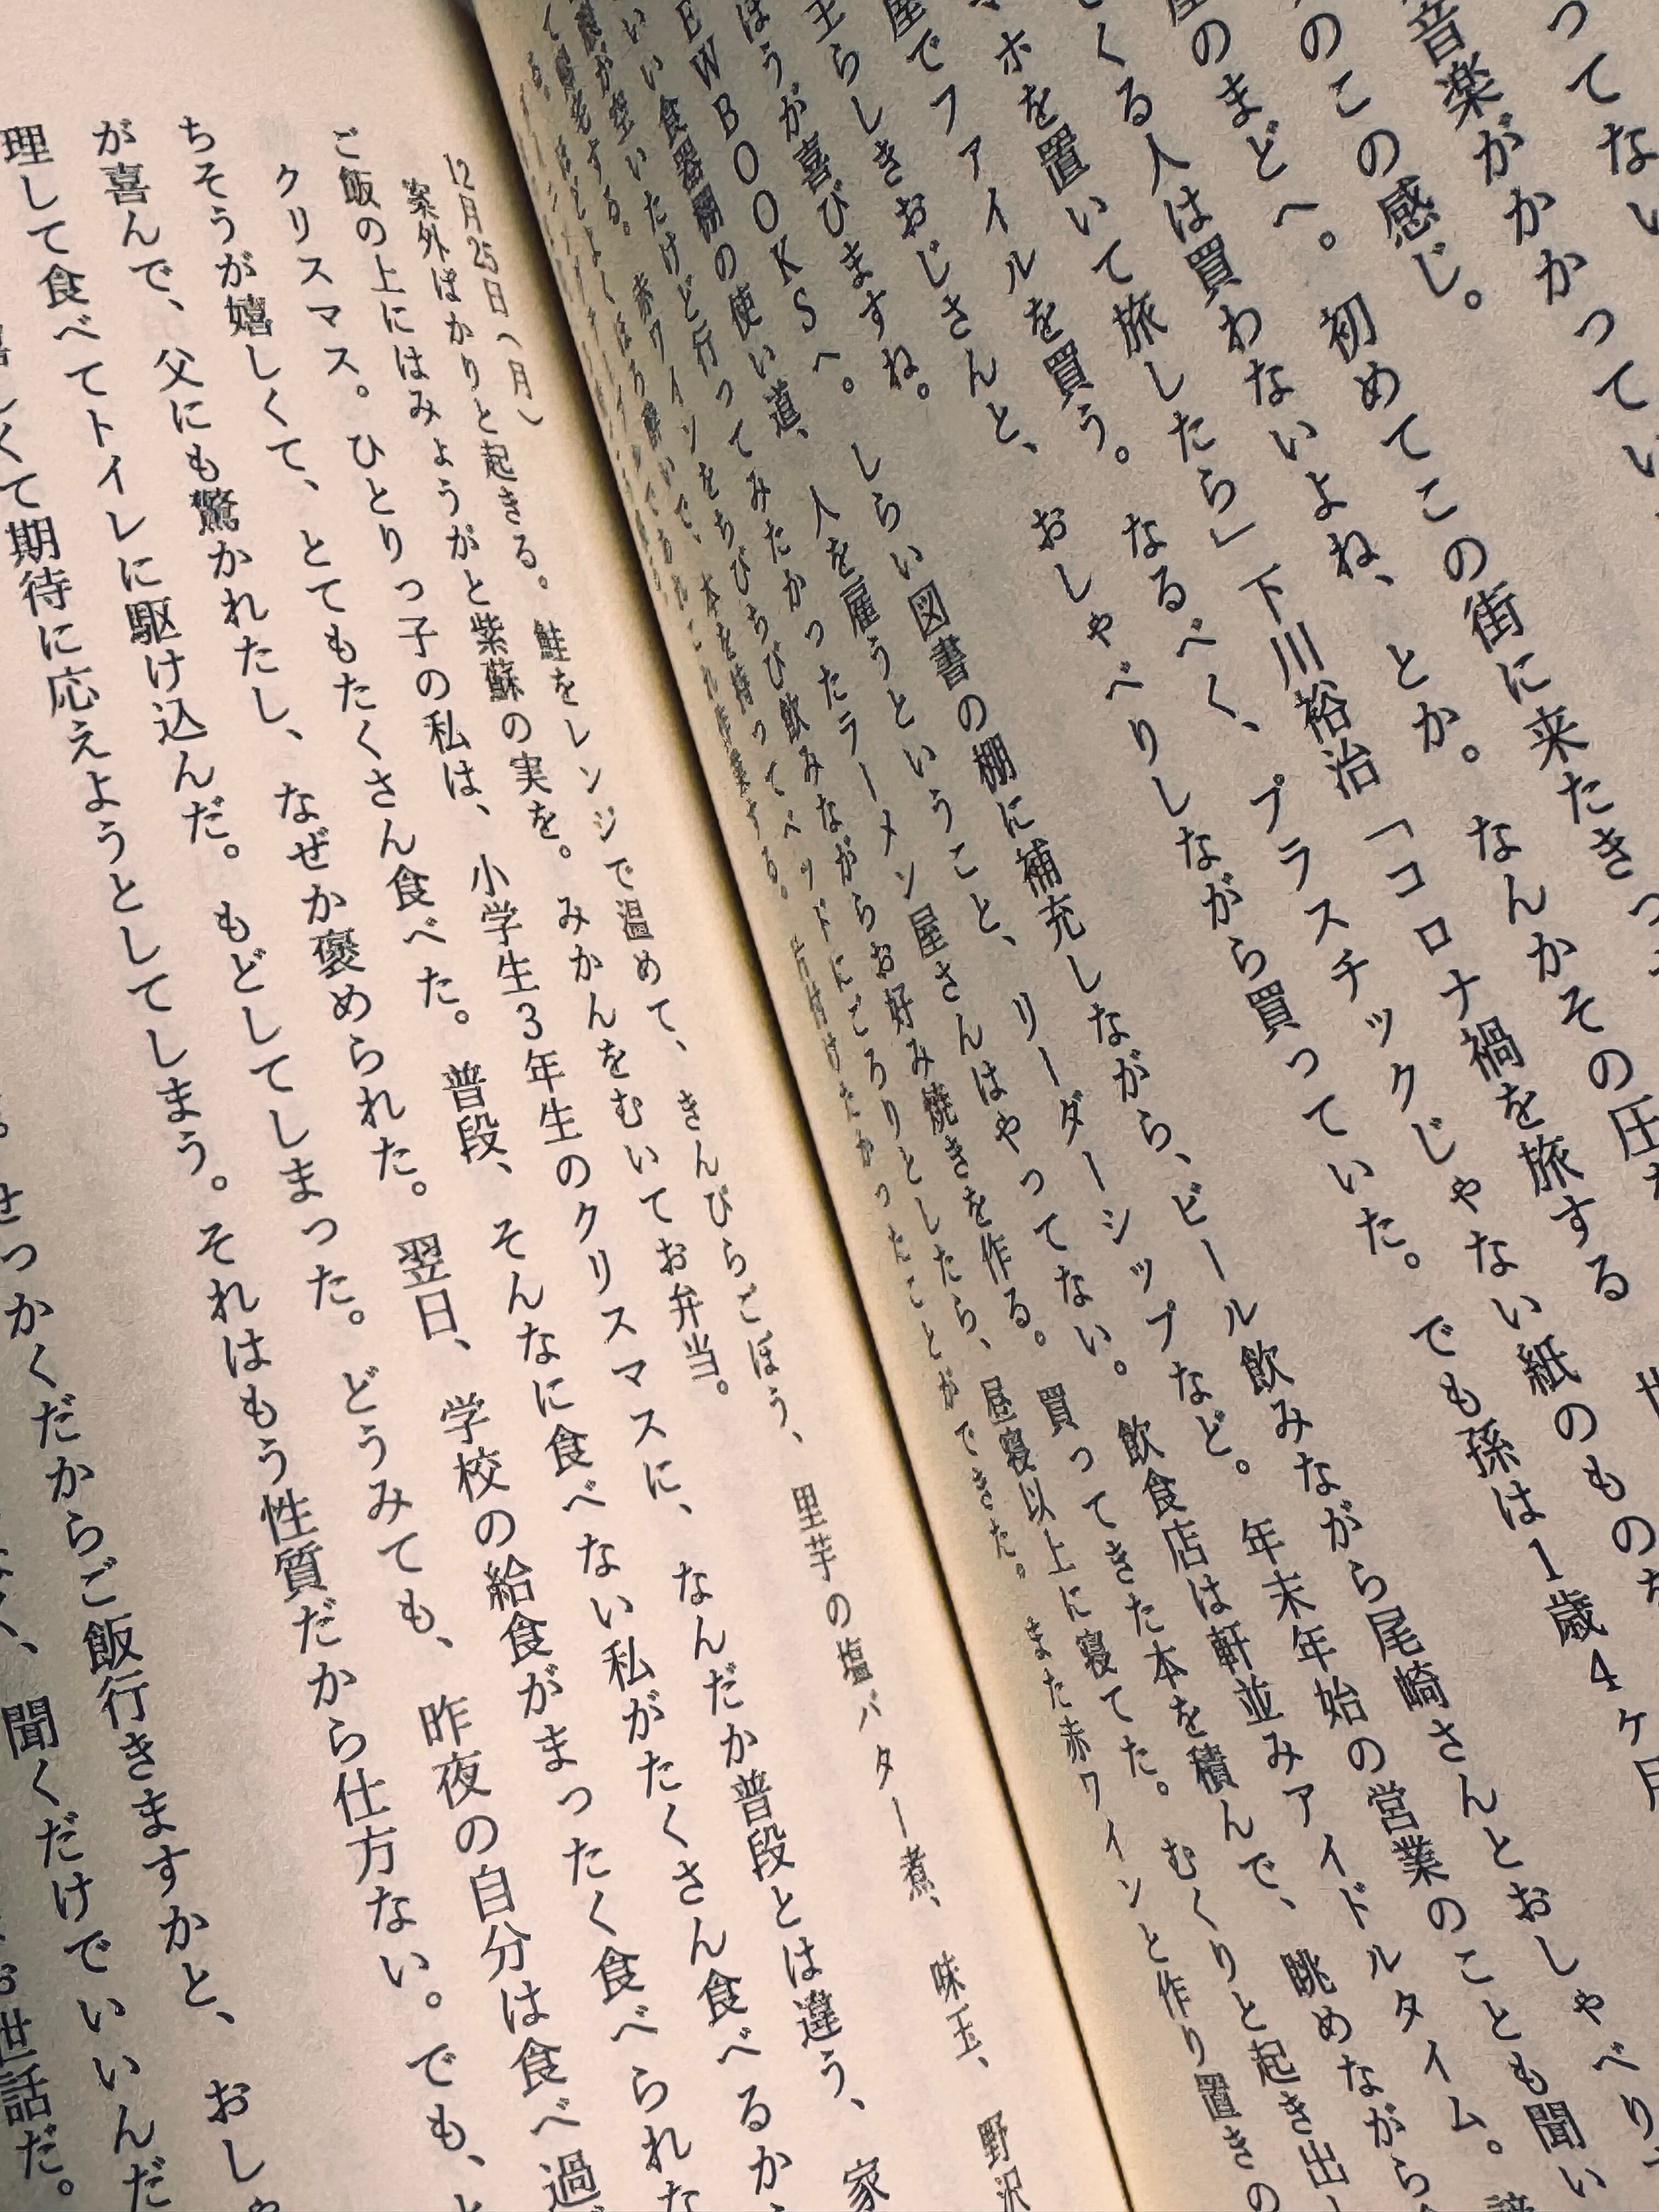 ってない
音楽がかかってい
のこの感じ。初めてこの街に来たきっ
のまどへ。
くる人は買わないよね、とか。なんかその圧
ホを置いて旅したら」下川裕治「コロナ禍を旅する
屋でファイルを買う。なるべく、プラスチックじゃない紙のもの
主らしきおじさんと、おしゃべりしながら買っていた。でも孫は1歳4ヶ月
ほうが喜びますね。
EWBOOKSへ。しらい図書の棚に補充しながら、ビール飲みながら尾崎さんとおしゃべり
いい食器棚の使い道、人を雇うということ、リーダーシップなど。年末年始の営業のことも聞い
が空いたけど行ってみたかったラーメン屋さんはやってない。飲食店は軒並みアイドルタイム。
する。赤ワインをちびちび飲みながらお好み焼きを作る。買ってきた本を積んで、眺めながら
本を持ってベッドにごろりとしたら、昼寝以上に寝てた。むくりと起き出
たかったことができた。また赤ワインと作り置きの
12月25日(月)
案外ぱかりと起きる。鮭をレンジで温めて、きんぴらごぼう、里芋の塩バター煮、味玉、野沢
ご飯の上にはみょうがと紫蘇の実を。みかんをむいてお弁当。
クリスマス。ひとりっ子の私は、小学生3年生のクリスマスに、なんだか普段とは違う、家
ちそうが嬉しくて、とてもたくさん食べた。普段、そんなに食べない私がたくさん食べるか
が喜んで、父にも驚かれたし、なぜか褒められた。翌日、学校の給食がまったく食べられな
理して食べてトイレに駆け込んだ。もどしてしまった。どうみても、昨夜の自分は食べ過
くて期待に応えようとしてしまう。それはもう性質だから仕方ない。でも、
せっかくだからご飯行きますかと、おし
聞くだけでいいんだ
お世話だ。